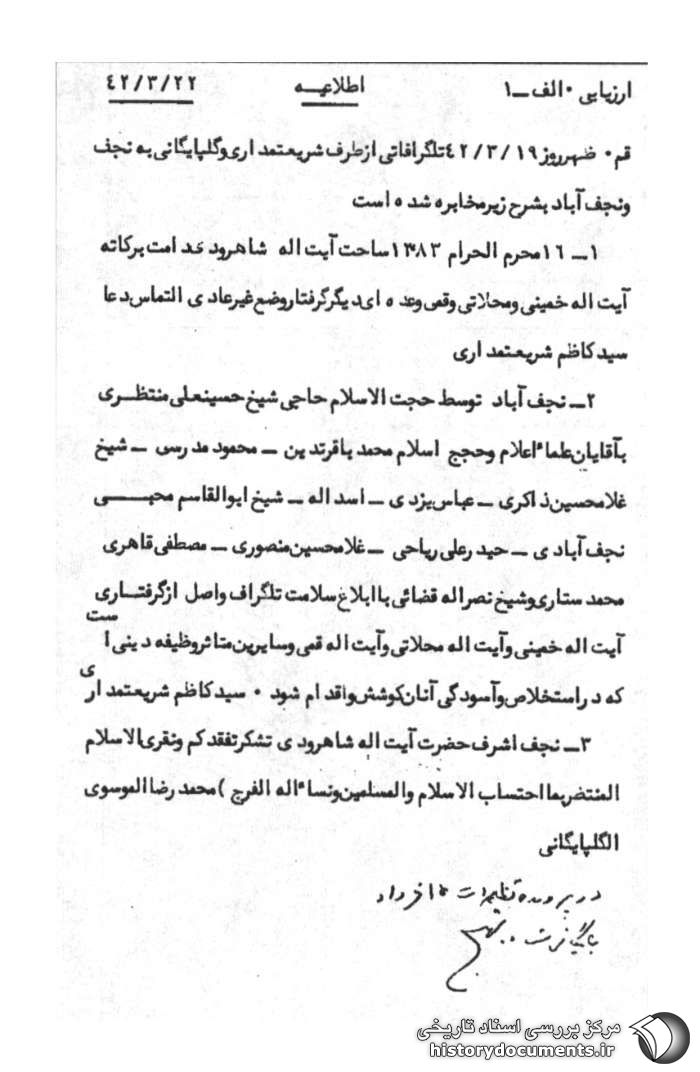 ارزیابی ۰ الف ــ ۱ اطلاعیــه ٤٢/٣/٢٢
قم ۰ ظهرروز ١٩/٣/٤٢ تلگرافاتی ازطرف شریعتمداری وگلپایگانی به نجف
ونجف آباد بشرح زیرمخابره شده است
١ــ ١٦ محرم الحرام ١٣٨٣ ساحت آیت اله شاهرودی دامت برکاته
آیت اله خمینی ومحلاتی وقمی وعده ای دیگرگرفتار وضع غیرعادی التماس دعا
سیدکاظم شریعتمداری
٢ــ نجف آباد توسط حجت الاسلام حاجی شیخ حسینعلی منتظــری
بآقایان علماء اعلام وحجج اسلام محمد باقرتدین ــ محمود مدرسی ــ شیخ
غلامحسین ذاکری ــ عباس یزدی ــ اسداله ــ شیخ ابوالقاسم محبـــی
نجف آبادی ــ حیدرعلی ریاحی ــ غلامحسین منصوری ــ مصطفی قاهری
محمد ستاری وشیخ نصراله قضائی باابلاغ سلامت تلگراف واصل ازگرفتــاری
آیت اله خمینی وآیت اله محلاتی وآیت اله قمی وسایرین متاثر وظیفه دینی است
که دراستخلاص وآسودگی آنان کوشش واقدام شود ۰ سیدکاظم شریعتمداری
٣ــ نجف اشرف حضرت آیت اله شاهرودی تشکرتفقدکم ونقری الاسلام
المنتضر بما احتساب الاسلام والمسلمین ونساءاله الفرج ) محمدرضا الموسوی
الگلپایگانی
در پرونده تظاهرات ١٥ خرداد
بایگانی شود
مرکز بررسی اسناد تاریخی
historydocuments.ir